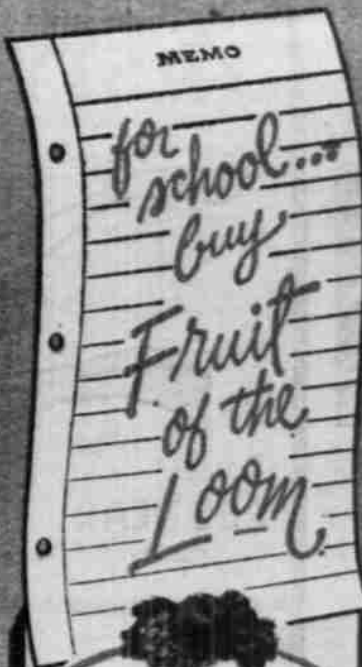 MEMO
for
school...
buy
Fruit
of the
Loom